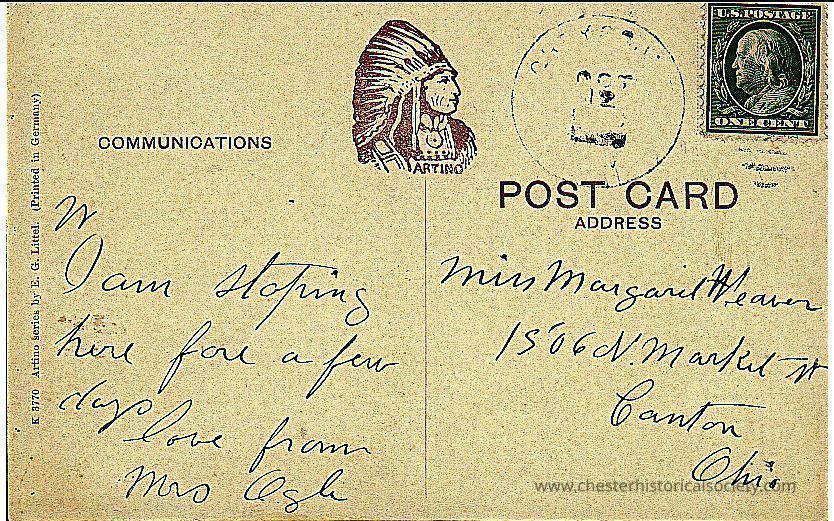 U.S. POSTAGE
ONE CENT
OCT
ARTINO
COMMUNICATIONS
POST CARD
ADDRESS
K 3770 Artino series by E. G. Littel. (Printed in Germany)
W
I am stoping
here fore a few
days
love from
Mrs Ogle
Miss Margaret Weaver
1506 N. Market st
Canton
Ohio
www.chesterhistoricalsociety.com